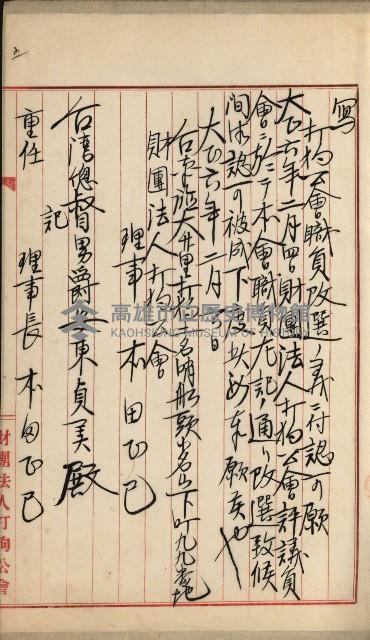 寫
打狗公會職員改選ノ義ニ付認可願
大正六年二月四日財團法人打狗公會評議員
會ニ於テ本會職員左記ノ通リ改選致候
間御認可被成下度此段奉願候也
大正六年二月 日
台南廳大竹里打狗 船頭 下町九九番地
財團法人打狗公會
理事 本田正已
台湾總督男爵安東貞美殿
記
重任 理事長 本田正已
財團法人打狗公會
高雄市立歷史博物館
KAOHSIUNG MUSEUM OF HISTORY